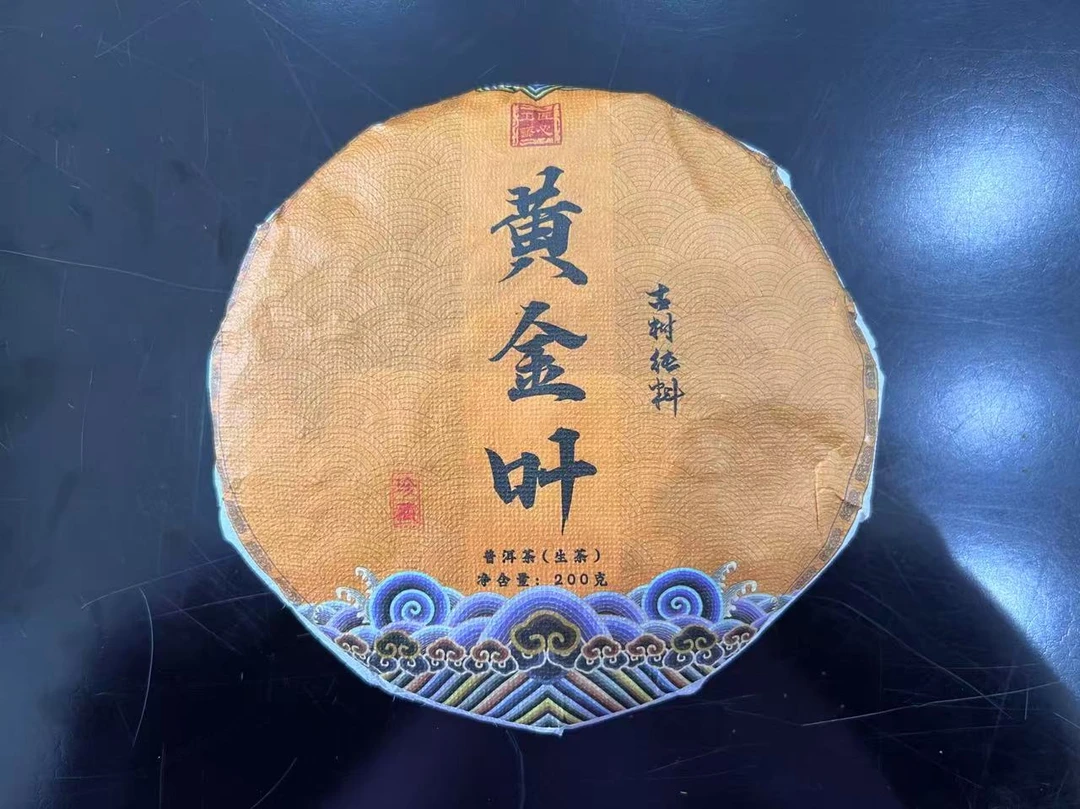 匠心
工艺
黄金叶
古树纯料
珍藏
普洱茶(生茶)
净含量：200克